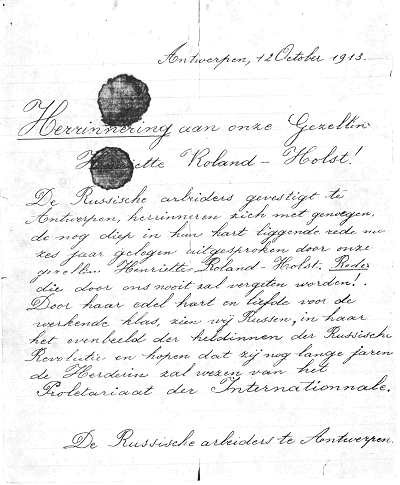 Antwerpen, 12 October 1913.
Herrinnering aan onze Gezellin
Henriette Roland-Holst!
De Russische arbeiders gevestigt te
Antwerpen, herrinneren zich met genoegen,
de nog diep in hun hart liggende rede nu
zes jaar gelegen uitgesproken door onze
gezellin Henriette Roland-Holst. Rede
die door ons nooit zal vergeten worden!
Door haar edel hart en liefde voor de
werkende klas, zien wij Russen, in haar
het evenbeeld der heldinnen der Russische
Revolutie en hopen dat zij nog lange jaren
de Herderin zal wezen van het
Proletariaat der Internationnale.
De Russische arbeiders te Antwerpen.